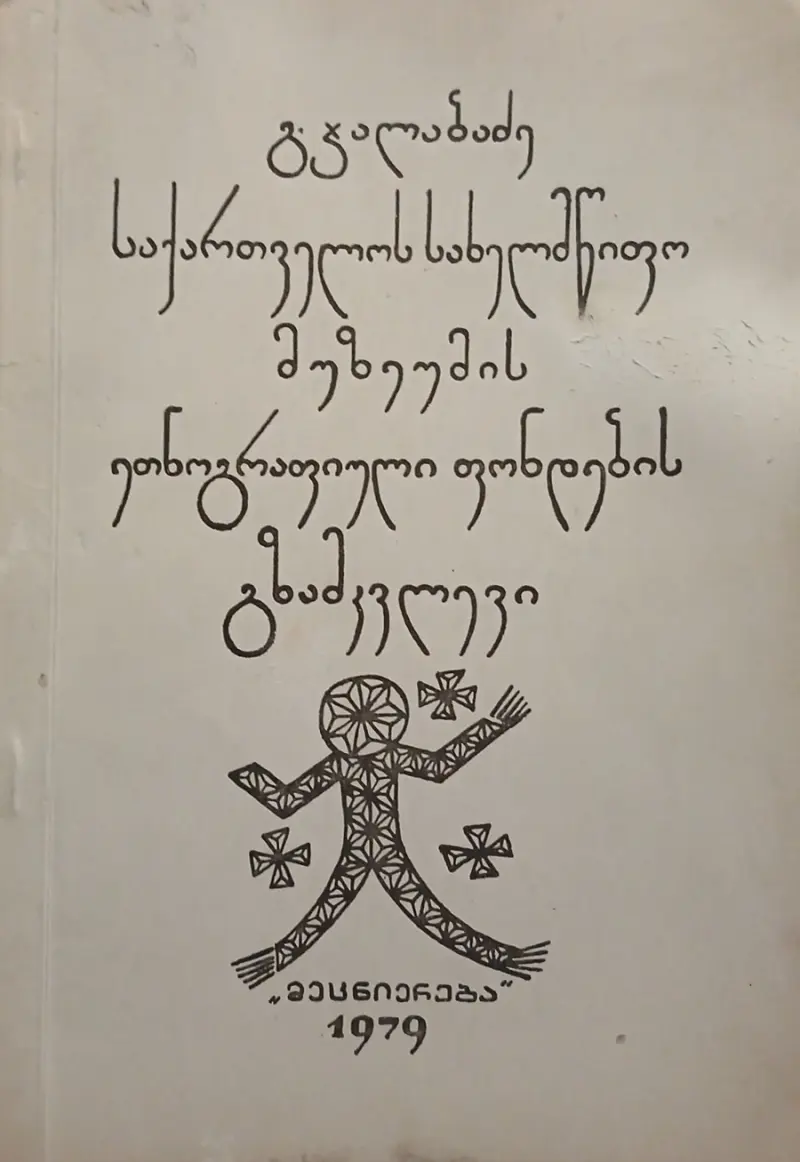 გ. ჯალაბაძე
საქართველოს სახელმწიფო
მუზეუმის
ეთნოგრაფიული ფონდების
გზამკვლევი
„მეცნიერება“
1979